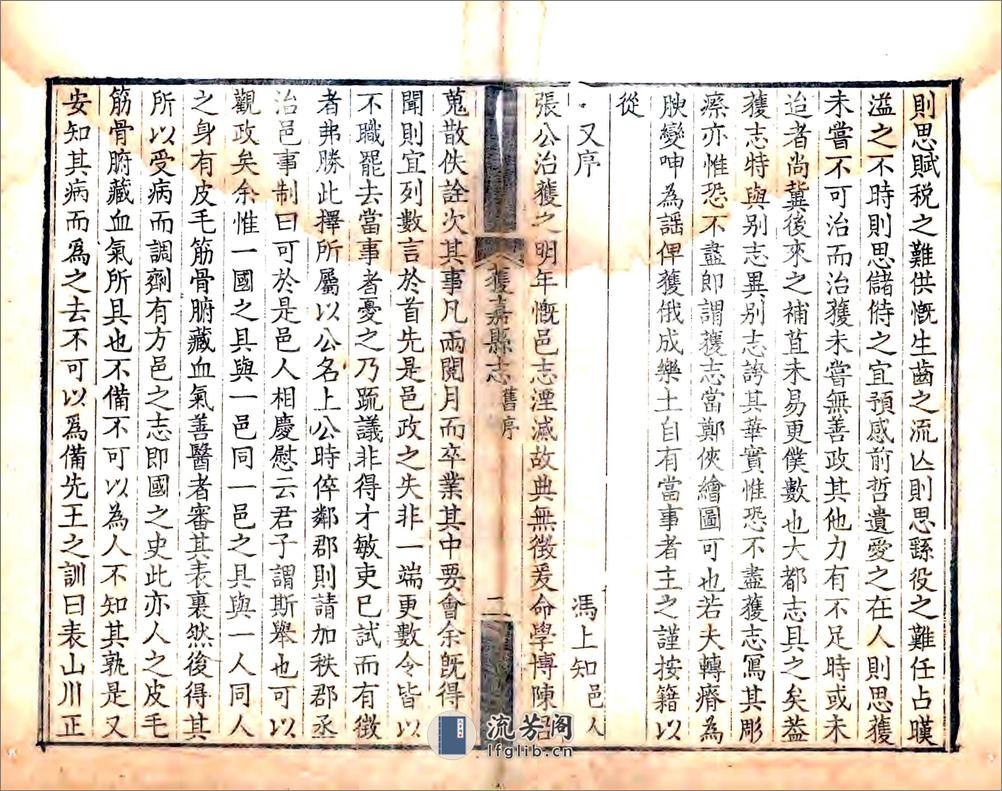 則思賦稅之難供慨生齒之流亾則思繇役之難任占暵
溢之不時則思儲偫之宜預感前哲遺愛之在人則思獲
未嘗不可治而治獲未嘗無善政其他力有不足時或未
迨者尚冀後來之補苴未易更僕數也大都志具之矣葢
獲志特與别志異别志誇其華實惟恐不盡獲志寫其彫
瘵亦惟恐不盡即謂獲志當鄭俠繪圖可也若夫轉瘠為
腴變呻為謡俾獲俄成樂土自有當事者主之謹按籍以
從
又序
馮上知邑人
張公治獲之明年慨邑志湮滅故典無徵爰命學博陳
獲嘉縣志 舊序 二
蒐散佚詮次其事凡兩閱月而卒業其中要會余旣得
聞則宜列數言於首先是邑政之失非一端更數令皆以
不職罷去當事者憂之乃䟽議非得才敏吏已試而有徵
者弗勝此擇所屬以公名上公時倅鄰郡則請加秩郡丞
治邑事制曰可於是邑人相慶慰云君子謂斯舉也可以
觀政矣余惟一國之具與一邑同一邑之具與一人同人
之身有皮毛筋骨腑藏血氣善醫者審其表裏然後得其
所以受病而調劑有方邑之志即國之史此亦人之皮毛
筋骨腑藏血氣所具也不備不可以為人不知其孰是又
安知其病而爲之去不可以爲備先王之訓曰表山川正
流芳阁
lfglib.cn